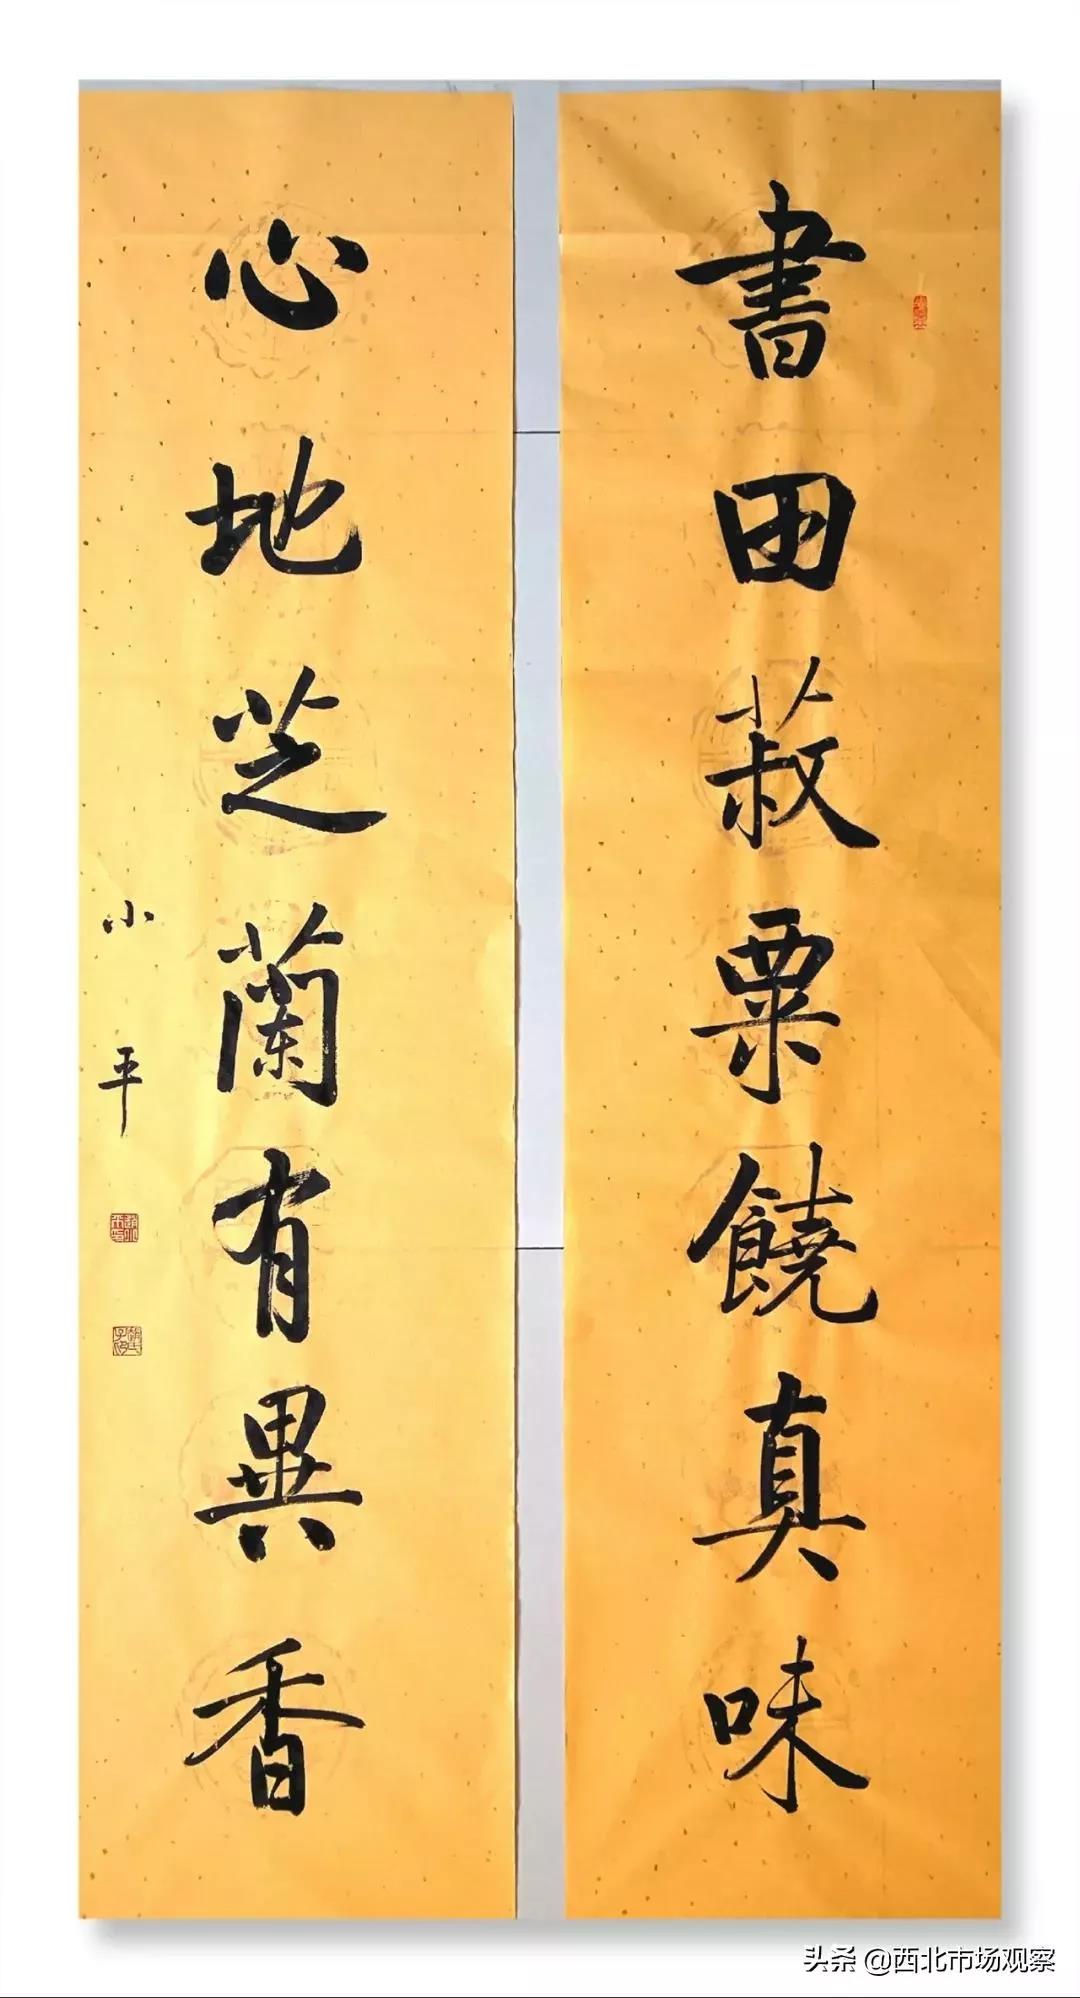 書田菽粟饒真味
心地芝蘭有異香
小平
头条 @西北市场观察